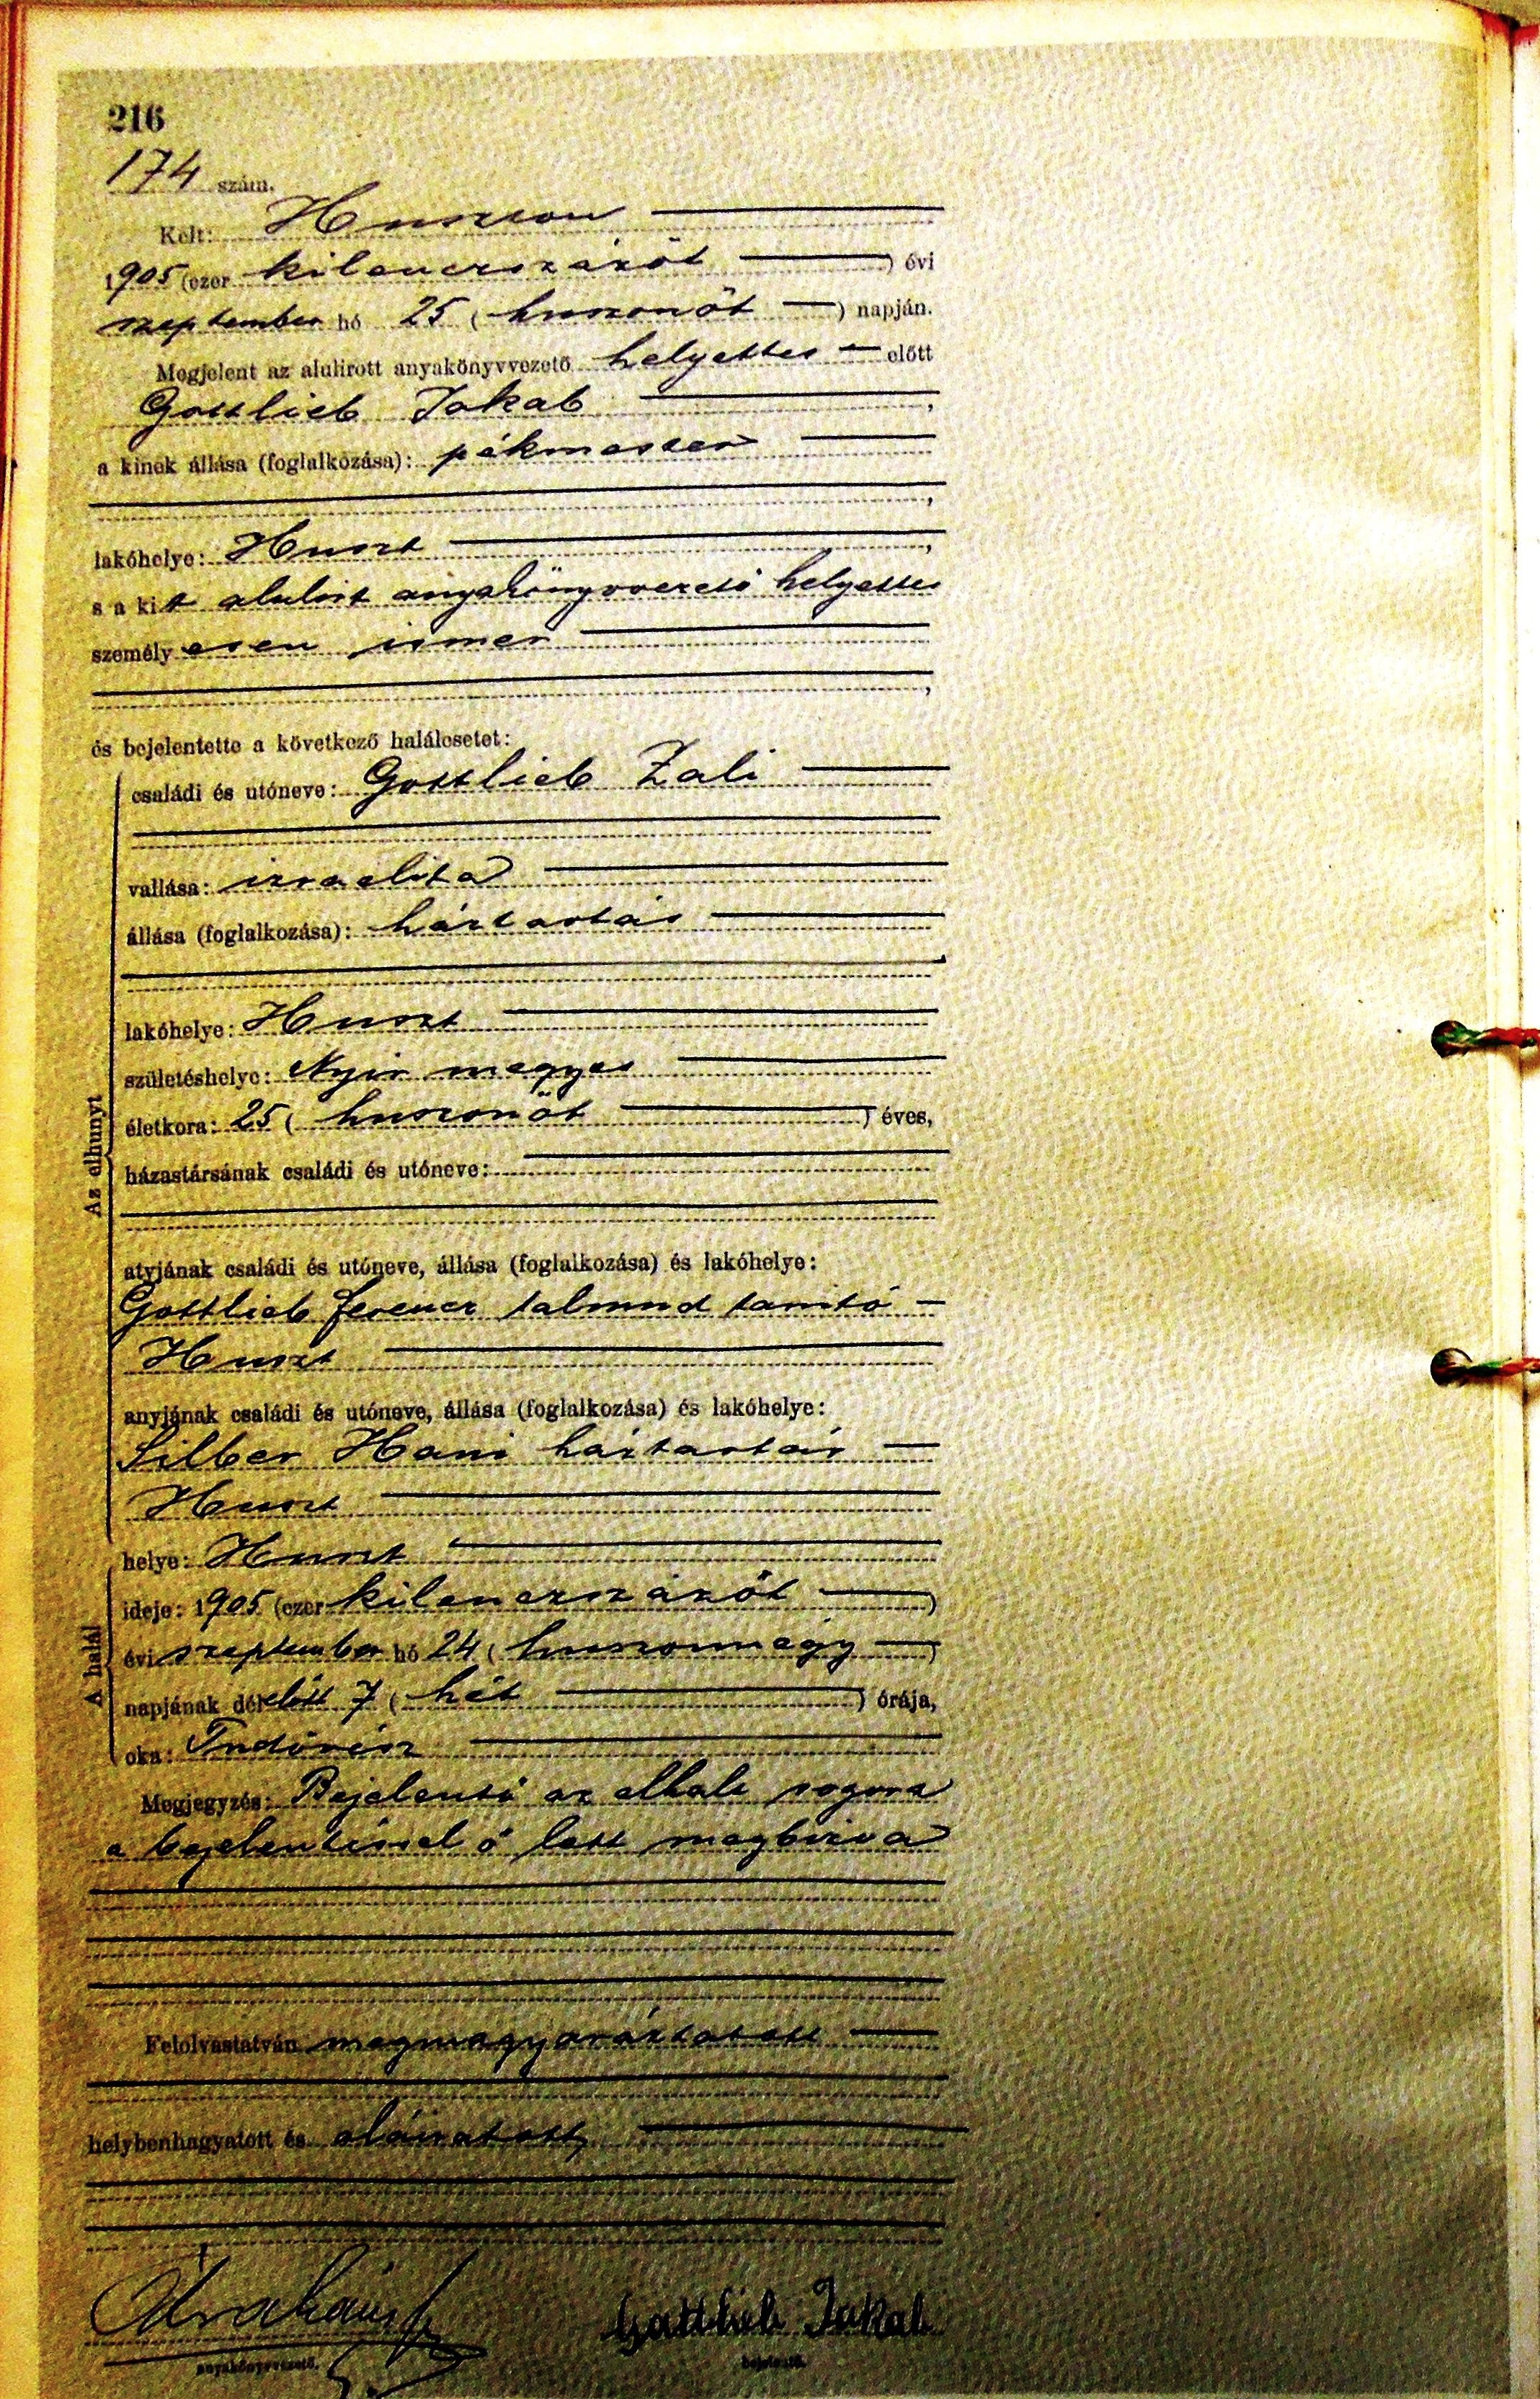 216
174 szám.
Kelt: Huszton
1905 (ezer kilenczszázöt ) évi
szeptember hó 25 ( huszonöt ) napján.
Megjelent az alulirott anyakönyvvezető helyettes előtt
Gottlieb Jakab ,
a kinek állása (foglalkozása): pékmester
,
lakóhelye: Huszt ,
s a kit alulirt anyakönyvvezető helyettes
személyesen ismer
,
és bejelentette a következő halálesetet:
Az elhunyt
családi és utóneve: Gottlieb Zali
vallása: izraelita
állása (foglalkozása): háztartás
lakóhelye: Huszt
születéshelye: Nyir megyes
életkora: 25 ( huszonöt ) éves,
házastársának családi és utóneve:
atyjának családi és utóneve, állása (foglalkozása) és lakóhelye:
Gottlieb ferencz talmud tanitó
Huszt
anyjának családi és utóneve, állása (foglalkozása) és lakóhelye:
Silber Hani háztartás
Huszt
A halál
helye: Huszt
ideje: 1905 (ezer kilenczszázöt )
évi szeptember hó 24 ( huszonnégy )
napjának délelőtt 7 ( hét ) órája,
oka: Tüdővész
Megjegyzés: Bejelentő az elhalt sogora
a bejelentéssel ő lett megbizva
Felolvastatván megmagyaráztatott
helybenhagyatott és aláiratott,
anyakönyvvezető.
Gottlieb Jakab
bejelentő.